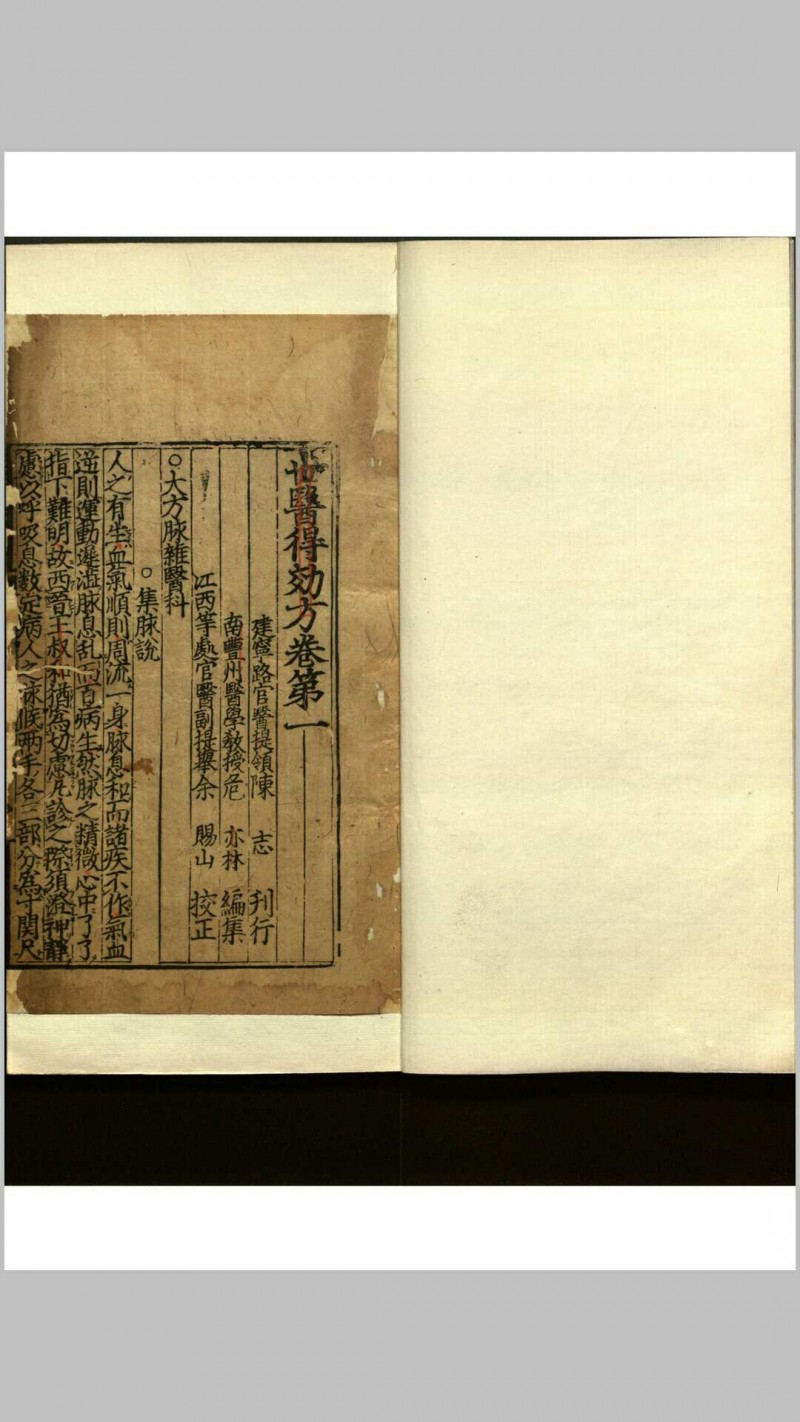 世醫得効方卷第一
建寧路官醫提領陳　志　刊行
南豐州醫學教授危　亦林　編集
江西等處官醫副提舉余　賜山　挍正
○大方脉雜醫科
○集脉說
人之有生血氣順則周流一身脉息和而諸疾不作氣血
逆則運動遲澁脉息乱而百病生然脉之精微心中了了
指下難明故西晉王叔和猶爲切慮凡診之際須澄神靜
慮以呼吸息數定病人之脉候兩手各三部分爲寸関尺